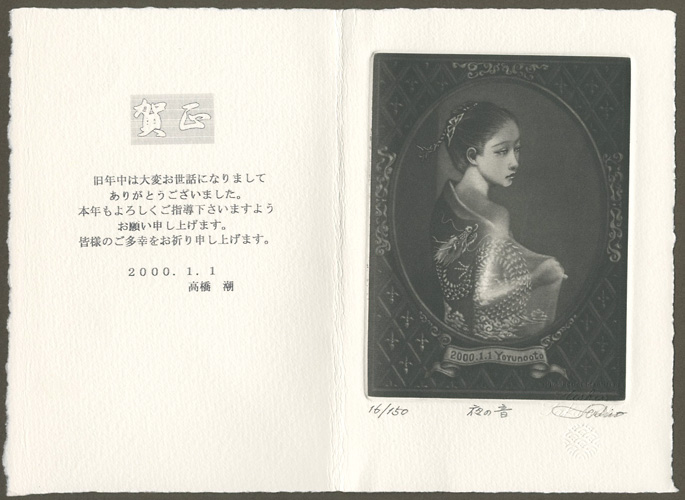 賀正
旧年中は大変お世話になりまして
ありがとうございました。
本年もよろしくご指導下さいますよう
お願い申し上げます。
皆様のご多幸をお祈り申し上げます。
2000.1.1
高橋 潮
2000.1.1 Yorunooto
16/150
夜の音